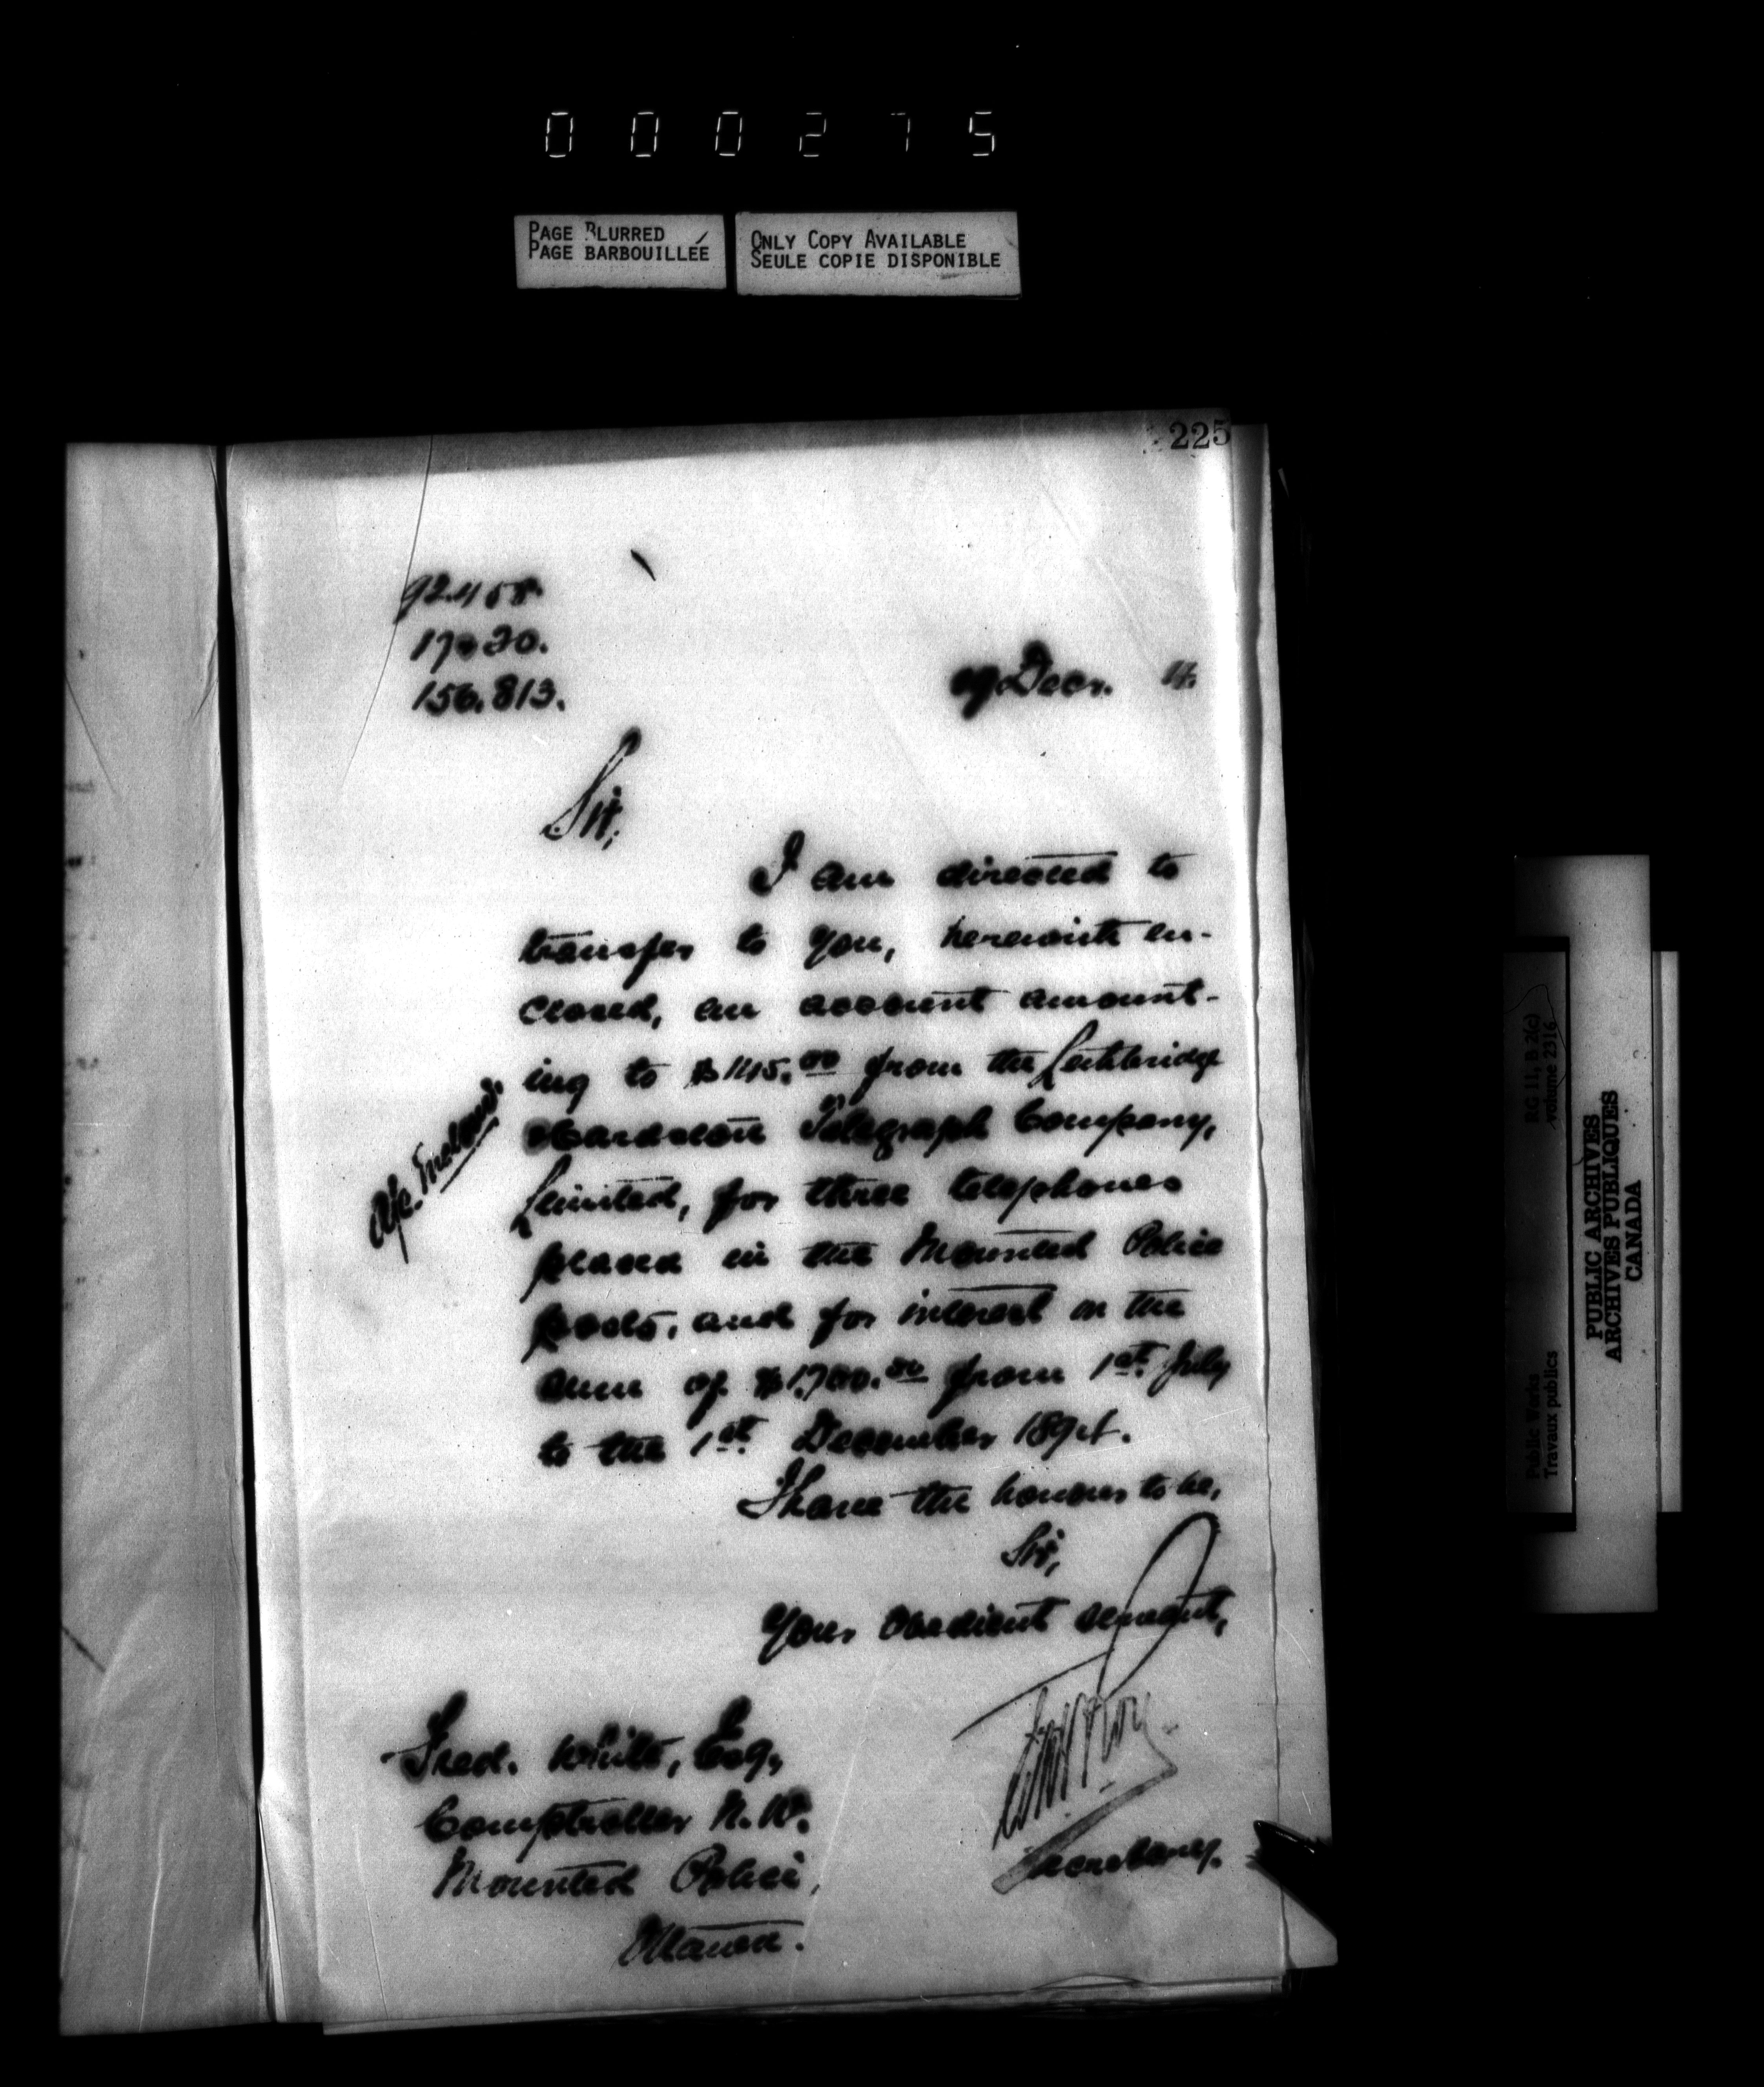 000275
PAGE BLURRED
PAGE BARBOUILLÉE
ONLY COPY AVAILABLE
SEULE COPIE DISPONIBLE
225
156.813.
Decr.
Sir,
I am directed to
transfer to you, herewith en-
closed, an account amount-
ing to from the Lethbridge
Cardston Telegraph Company,
Limited, for three telephones
placed in the Mounted Police
posts, and for interest on the
sum of $1,700.00 from 1st July
to the 1st December 1894.
I have the honour to be,
Sir,
Your obedient servant,
Secretary.
Fred. White, Esq,
Comptroller N. W.
Mounted Police,
Ottawa.
RG 11, B 2(c)
volume 2316
Public Works
Travaux publics
PUBLIC ARCHIVES
ARCHIVES PUBLIQUES
CANADA